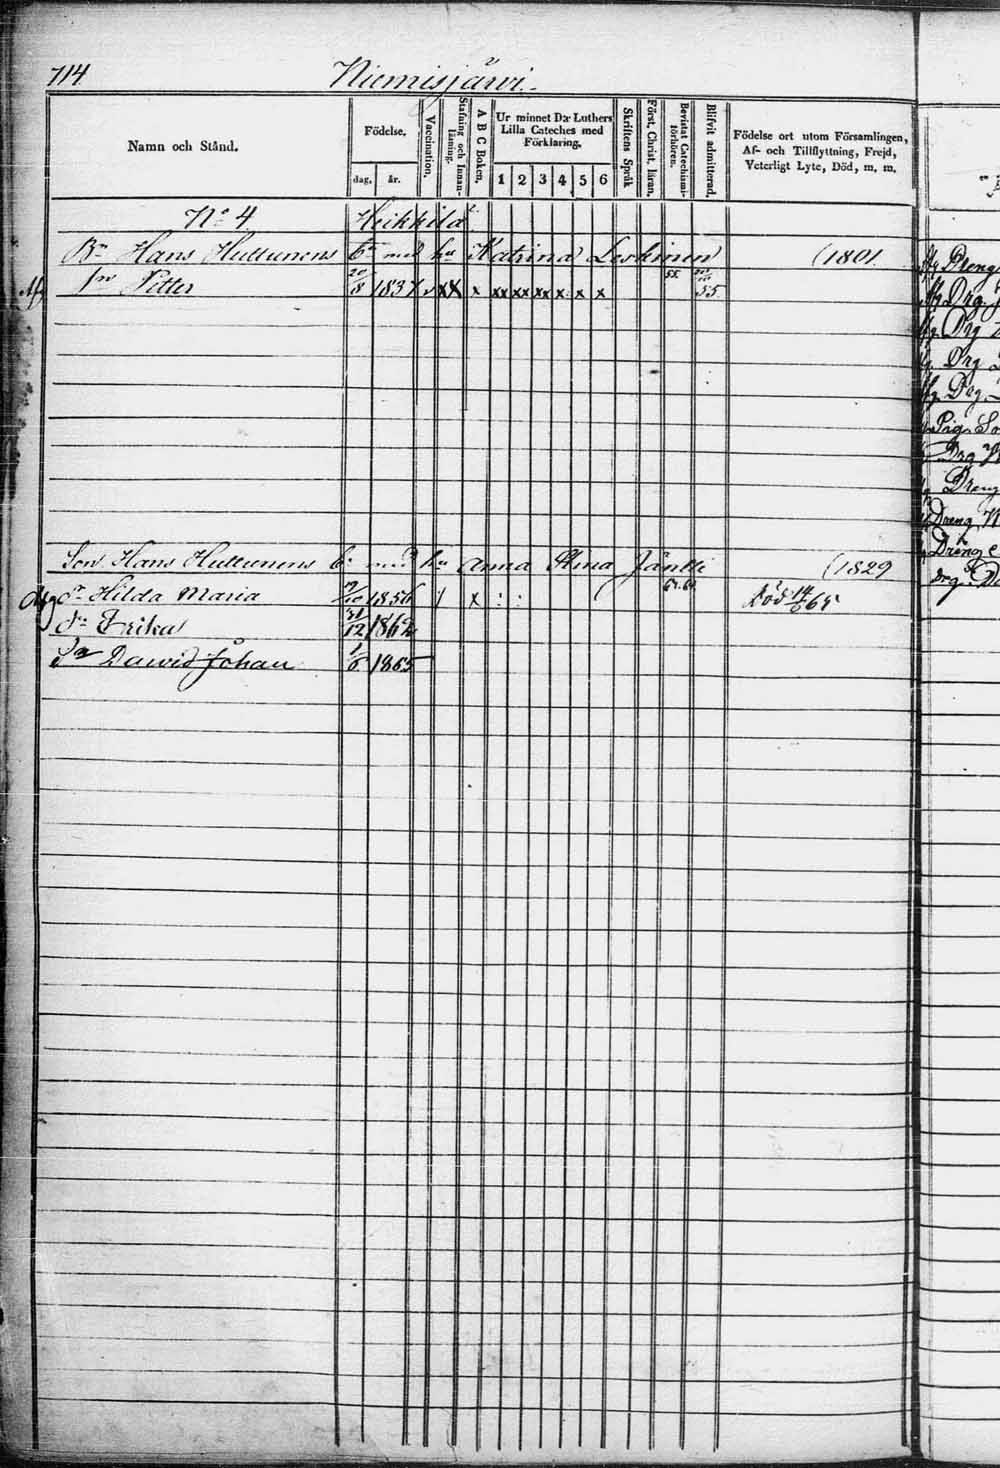 714 Niemisjärvi.
Namn och Stånd.
Födelse.
dag. år.
Vaccination.
Stafning och Innan-läsning.
A B C Boken.
Ur minnet D:r Luthers
Lilla Cateches med
Förklaring.
1 2 3 4 5 6
Skriftens Språk
Först. Christ. läran.
Bevistat Catechismi-förhören.
Blifvit admitterad.
Födelse ort utom Församlingen,
Af- och Tillflyttning, Frejd,
Veterligt Lyte, Död, m. m.
No 4 Heikkilä
Bn Hans Huttunens bn med hu Katrina Leskinen (1801.
Sn Petter 20/8 1837 v xx x xx xx xx x x x 55. 55
Son Hans Huttunens bn med hu Anna Stina Jäntti (1829
Dr Hilda Maria /10 1856 / x : : 67. död 14/6 65
Dr Erika 31/12 1862
Sn Dawid Johan 1/6 1865
Dreng
Drg.
Drg
Drg
Drg.
Pig. So
Drg
Dreng
Dreng
Dreng
Drg.